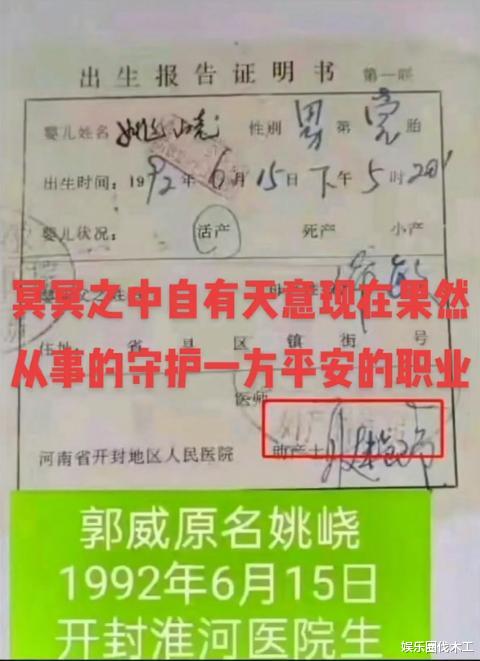 出生报告证明书 第一联
婴儿姓名 姚峣 性别 男 第 胎
出生时间：1992年6月15日下午5时20
婴儿状况： 活产 死产 小产
冥冥之中自有天意现在果然
从事的守护一方平安的职业
住地： 省 县 区 镇 街 号
医师
河南省开封地区人民医院 助产士
郭威原名姚峣
1992年6月15日
开封淮河医院生
娱乐圈伐木工